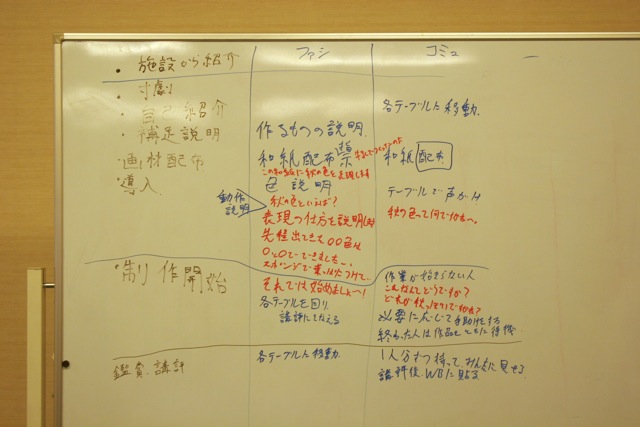 ファシ
コミュ
・施設から紹介
・寸劇
・自己紹介
・補足説明
画材配布
導入
作るものの説明
和紙配布
色説明
動作
説明
秋の色といえば?
表現の仕方を説明します
先程出てきた〇〇色は
それでは始めましょ〜!
各テーブルを回り
各テーブルに移動
和紙配布
テーブルで声かけ
秋の色って何ですかね〜。
制作開始
作業が始まらない人
こんなんてどうですか?
必要に応じて手助けをする
終わった人は作品とともに待機
鑑賞、講評
各テーブルに移動
1人分ずつ持って、みんなに見せる
講評後、WBに貼る